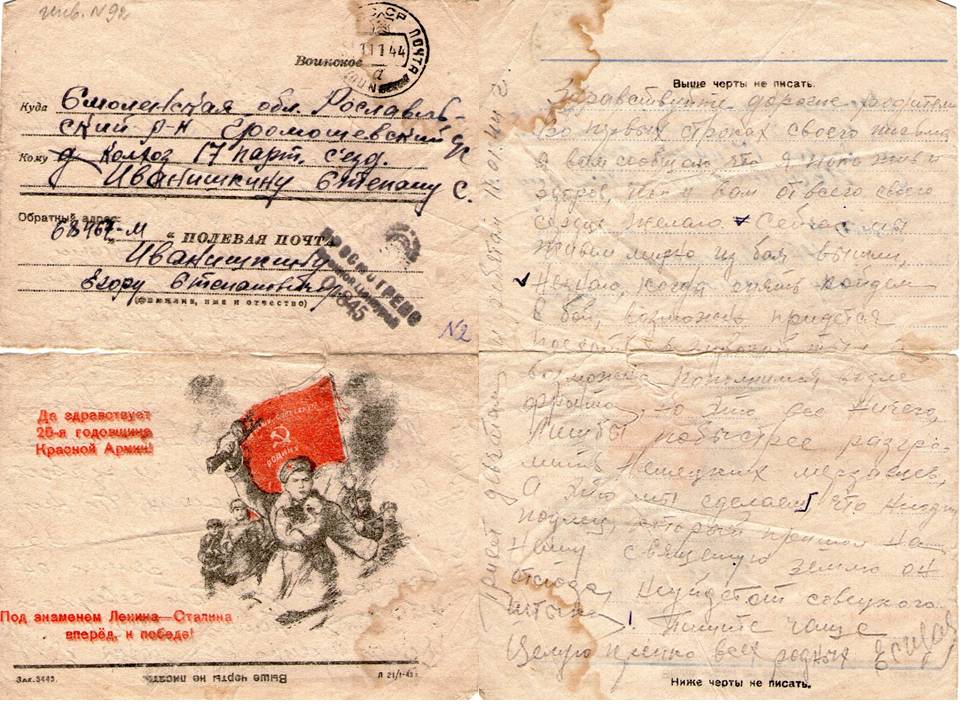 инв. N 92
СССР ПОЧТА
11 1 44
а
Воинское
Куда Смоленская обл. Рославль-
ский р-н Громошевский с/с
Кому д колхоз 17 парт. с'езд.
Иванишкину Степану С.
Обратный адрес:
68467-М „ " ПОЛЕВАЯ ПОЧТА
Иванишкину
Егору Степановичу
(фамилия, имя и отчество)
ПРОСМОТРЕНО
Военной Цензурой
N2
Да здравствует
25-я годовщина
Красной Армии!
ЗА СОВЕТСКУЮ
РОДИНУ
Под знаменем Ленина—Сталина
вперёд, к победе!
Выше черты не писать.
Зак. 3445.
Л 21/I-43
Выше черты не писать.
Здравствуйте дорогие родители
во первых строках своего письма
я вам сообщаю, что я пока жив и
здоров, того и вам от всего своего
сердца желаю. Сейчас мы
из боя вышли,
Незнаю, когда опять пойдем
в бой, возможно придется
возможно пополнимся возле
фронта, но это все ничего,
лишьбы побыстрее разгро-
мить Немецких мерзавцев,
А это мы сделаем, что Не
который пришол На
Нашу священую землю он
отсюда Неуйдет от совецкого
штыка! Пишите чаще
Целую крепко всех родных
привет девчатам и ребятам 11.01.44 г.
Ниже черты не писать.